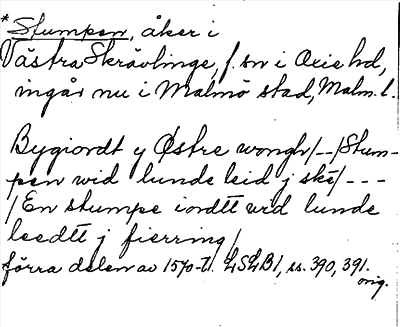 *Stumpen, åker i
Västra Skrävlinge, f. sn i Oxie hd,
ingår nu i Malmö stad, Malm. l.
Bygiordt y Østre wongh/--/Stum-
pen wid lunde leid j ske/---
/En stumpe iordtt wed lunde
leedtt j fierring/
förra delen av 1570-t. LSLB1, ss. 390, 391.
orig.